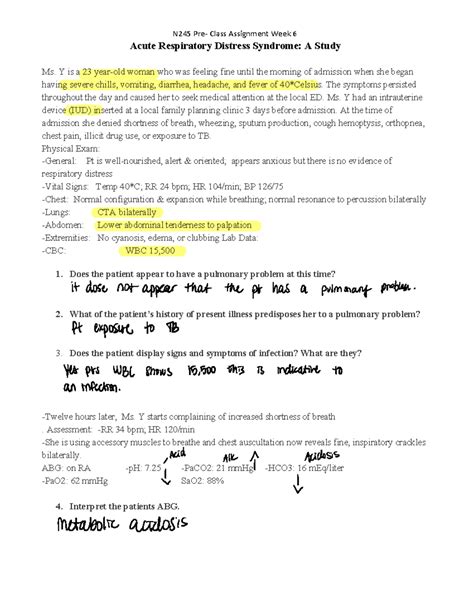 N245 Pre- Class Assignment Week 6
Acute Respiratory Distress Syndrome: A Study
Ms. Y is a 23 year-old woman who was feeling fine until the morning of admission when she began
having severe chills, vomiting, diarrhea, headache, and fever of 40*Celsius. The symptoms persisted
throughout the day and caused her to seek medical attention at the local ED. Ms. Y had an intrauterine
device (IUD) inserted at a local family planning clinic 3 days before admission. At the time of
admission she denied shortness of breath, wheezing, sputum production, cough hemoptysis, orthopnea,
chest pain, illicit drug use, or exposure to TB.
Physical Exam:
-General: Pt is well-nourished, alert & oriented; appears anxious but there is no evidence of
respiratory distress
-Vital Signs: Temp 40*C, RR 24 bpm; HR 104/min; BP 126/75
-Chest: Normal configuration & expansion while breathing, normal resonance to percussion bilaterally
-Lungs: CTA bilaterally
-Abdomen: Lower abdominal tenderness to palpation
-Extremities: No cyanosis, edema, or clubbing Lab Data:
-CBC: WBC 15,500
1. Does the patient appear to have a pulmonary problem at this time?
it dose not appear that the pt has a pulmonary problem.
2. What of the patient's history of present illness predisposes her to a pulmonary problem?
Pt exposure to TB
3. Does the patient display signs and symptoms of infection? What are they?
Yes pts WBC shows 15,500 this is indicative to
an infection.
-Twelve hours later, Ms. Y starts complaining of increased shortness of breath
. Assessment: -RR 34 bpm; HR 120/min
-She is using accessory muscles to breathe and chest auscultation now reveals fine, inspiratory crackles
bilaterally.
Acid Alk Acidosis
ABG: on RA -pH: 7.25 -PaCO2: 21 mmHg -HCO3: 16 mEq/liter
-PaO2: 62 mmHg SaO2: 88%
4. Interpret the patients ABG.
metabolic acidosis